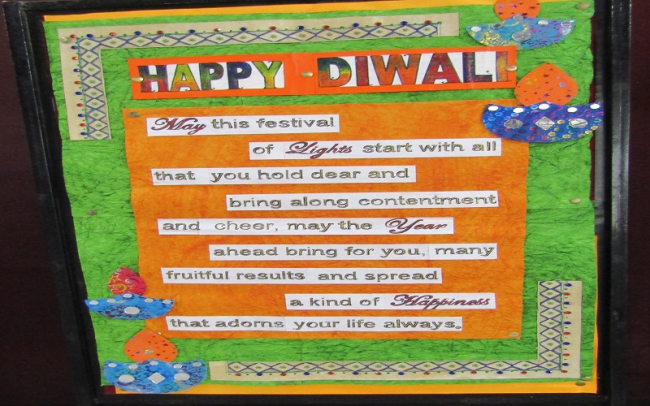 HAPPY DIWALI
May this festival
of Lights start with all
that you hold dear and
bring along contentment
and cheer, may the Year
ahead bring for you, many
fruitful results and spread
a kind of Happiness
that adorns your life always.